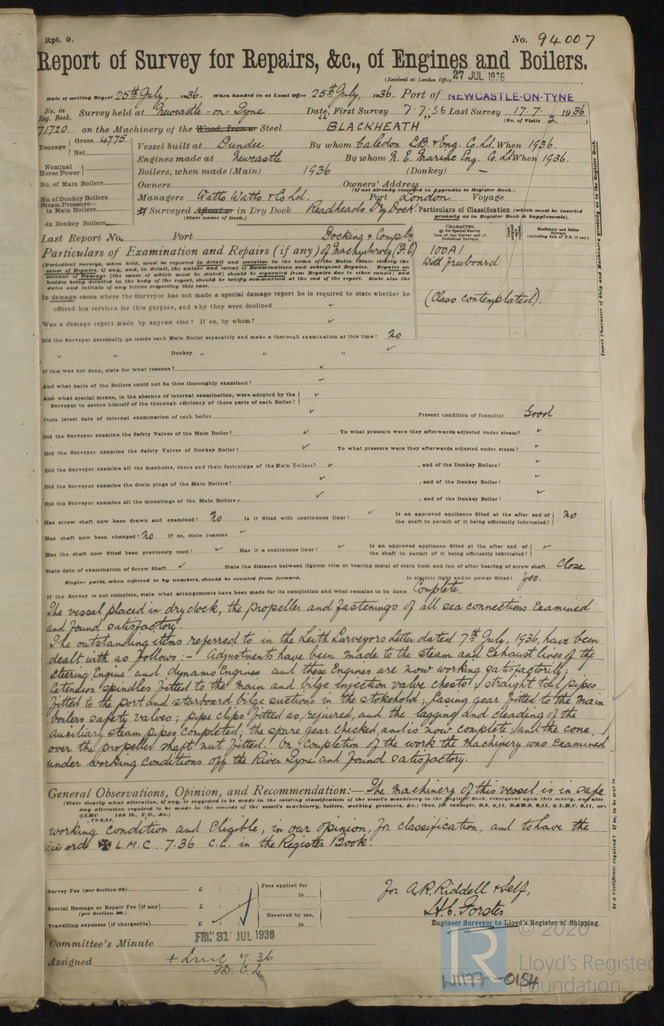 Rpt. 9.
No. 94007
Report of Survey for Repairs, &c., of Engines and Boilers.
(Received at London Office 27 JUL 1936
Date of writing Report 25th July, 1936. When handed in at Local Office 25th July, 1936. Port of NEWCASTLE-ON-TYNE
No. in Reg. Book. Survey held at Newcastle-on-Tyne Date, First Survey 7.7.36 Last Survey 17.7. 1936
(No. of Visits 2 )
71720 on the Machinery of the Wood, Iron or Steel "BLACKHEATH"
Tonnage Gross 4775 Net Vessel built at Dundee By whom Caledon S.B. & Eng. Co. Ld. When 1936.
Engines made at Newcastle By whom N. E. Marine Eng. Co. Ld. When 1936.
Nominal Horse Power Boilers, when made (Main) 1936 (Donkey) -
No. of Main Boilers Owners Owners' Address
(If not already recorded in Appendix to Register Book.)
No. of Donkey Boilers Managers Watts Watts & Co. Ld. Port London Voyage
Steam Pressure— in Main Boilers If Surveyed Afloat or in Dry Dock Readheads Dry Dock.
(State name of Dock.)
in Donkey Boilers
Particulars of Classification (which must be inserted precisely as in Register Book & Supplements).
Last Report No. Port Docking & Compln
Particulars of Examination and Repairs (if any) of Machy Survey (P.6)
100A1
with freeboard
(Class contemplated).
In damage cases where the Surveyor has not made a special damage report he is required to state whether he
offered his services for this purpose, and why they were declined
Was a damage report made by anyone else? If so, by whom?
Did the Surveyor personally go inside each Main Boiler separately and make a thorough examination at this time? No
„ „ Donkey „ „ „ „
If this was not done, state for what reasons?
And what parts of the Boilers could not be thus thoroughly examined?
Also what special means, in the absence of internal examination, were adopted by the
Surveyor to assure himself of the thorough efficiency of those parts of each Boiler?
State latest date of internal examination of each boiler Present condition of funnel(s) Good
Did the Surveyor examine the Safety Valves of the Main Boiler? To what pressure were they afterwards adjusted under steam?
Did the Surveyor examine the Safety Valves of Donkey Boiler? To what pressure were they afterwards adjusted under steam?
Did the Surveyor examine all the manholes, doors and their fastenings of the Main Boilers? , and of the Donkey Boilers?
Did the Surveyor examine the drain plugs of the Main Boilers? , and of the Donkey Boiler?
Did the Surveyor examine all the mountings of the Main Boilers, , and of the Donkey Boiler?
Has screw shaft now been drawn and examined? No Is it fitted with continuous liner? Is an approved appliance fitted at the after end of the shaft to permit of it being efficiently lubricated? No
Has shaft now been changed? No If so, state reasons
Has the shaft now fitted been previously used? Has it a continuous liner? Is an approved appliance fitted at the after end of the shaft to permit of it being efficiently lubricated?
State date of examination of Screw Shaft State the distance between lignum vitæ or bearing metal of stern bush and top of after bearing of screw shaft Close
Engine parts, when referred to by numbers, should be counted from forward. Is electric light and/or power fitted? Yes.
If the Survey is not complete, state what arrangements have been made for its completion and what remains to be done Complete
The vessel placed in dry dock, the propeller and fastenings of all sea connections examined
and found satisfactory.
The outstanding items referred to in the Leith Surveyors Letter dated 7th July, 1936, have been
dealt with as follows:- Adjustments have been made to the steam and exhaust lines of the
steering Engine and dynamo Engines and these Engines are now working satisfactorily;
Extension spindles fitted to the main and bilge injection valve chests; straight tail pipes
fitted to the port and starboard bilge suctions in the stokehold; Easing gear fitted to the main
boilers safety valves; pipe clips fitted as required, and the lagging and cleading of the
auxiliary steam pipes completed; the spare gear checked and is now complete, and the cone
over the propeller shaft nut fitted. On completion of the work the machinery was examined
under working conditions off the River Tyne and found satisfactory.
General Observations, Opinion, and Recommendation:— The machinery of this vessel is in safe
working condition and eligible, in our opinion, for classification, and to have the
record ✠ L.M.C. 7.36 C.L. in the Register Book.
Survey Fee (per Section 29) £ : :
Special Damage or Repair Fee (if any) £ : :
(per Section 29.)
Travelling expenses (if chargeable) £ : :
Fees applied for
19
Received by me,
19
for A.R. Riddell & Self,
H.C. Forster
Engineer Surveyor to Lloyd's Register of Shipping.
Committee's Minute FRI. 31 JUL 1936
Assigned + LMC 7.36
C.L.
© 2020
Lloyd's Register
Foundation
W1177-0154